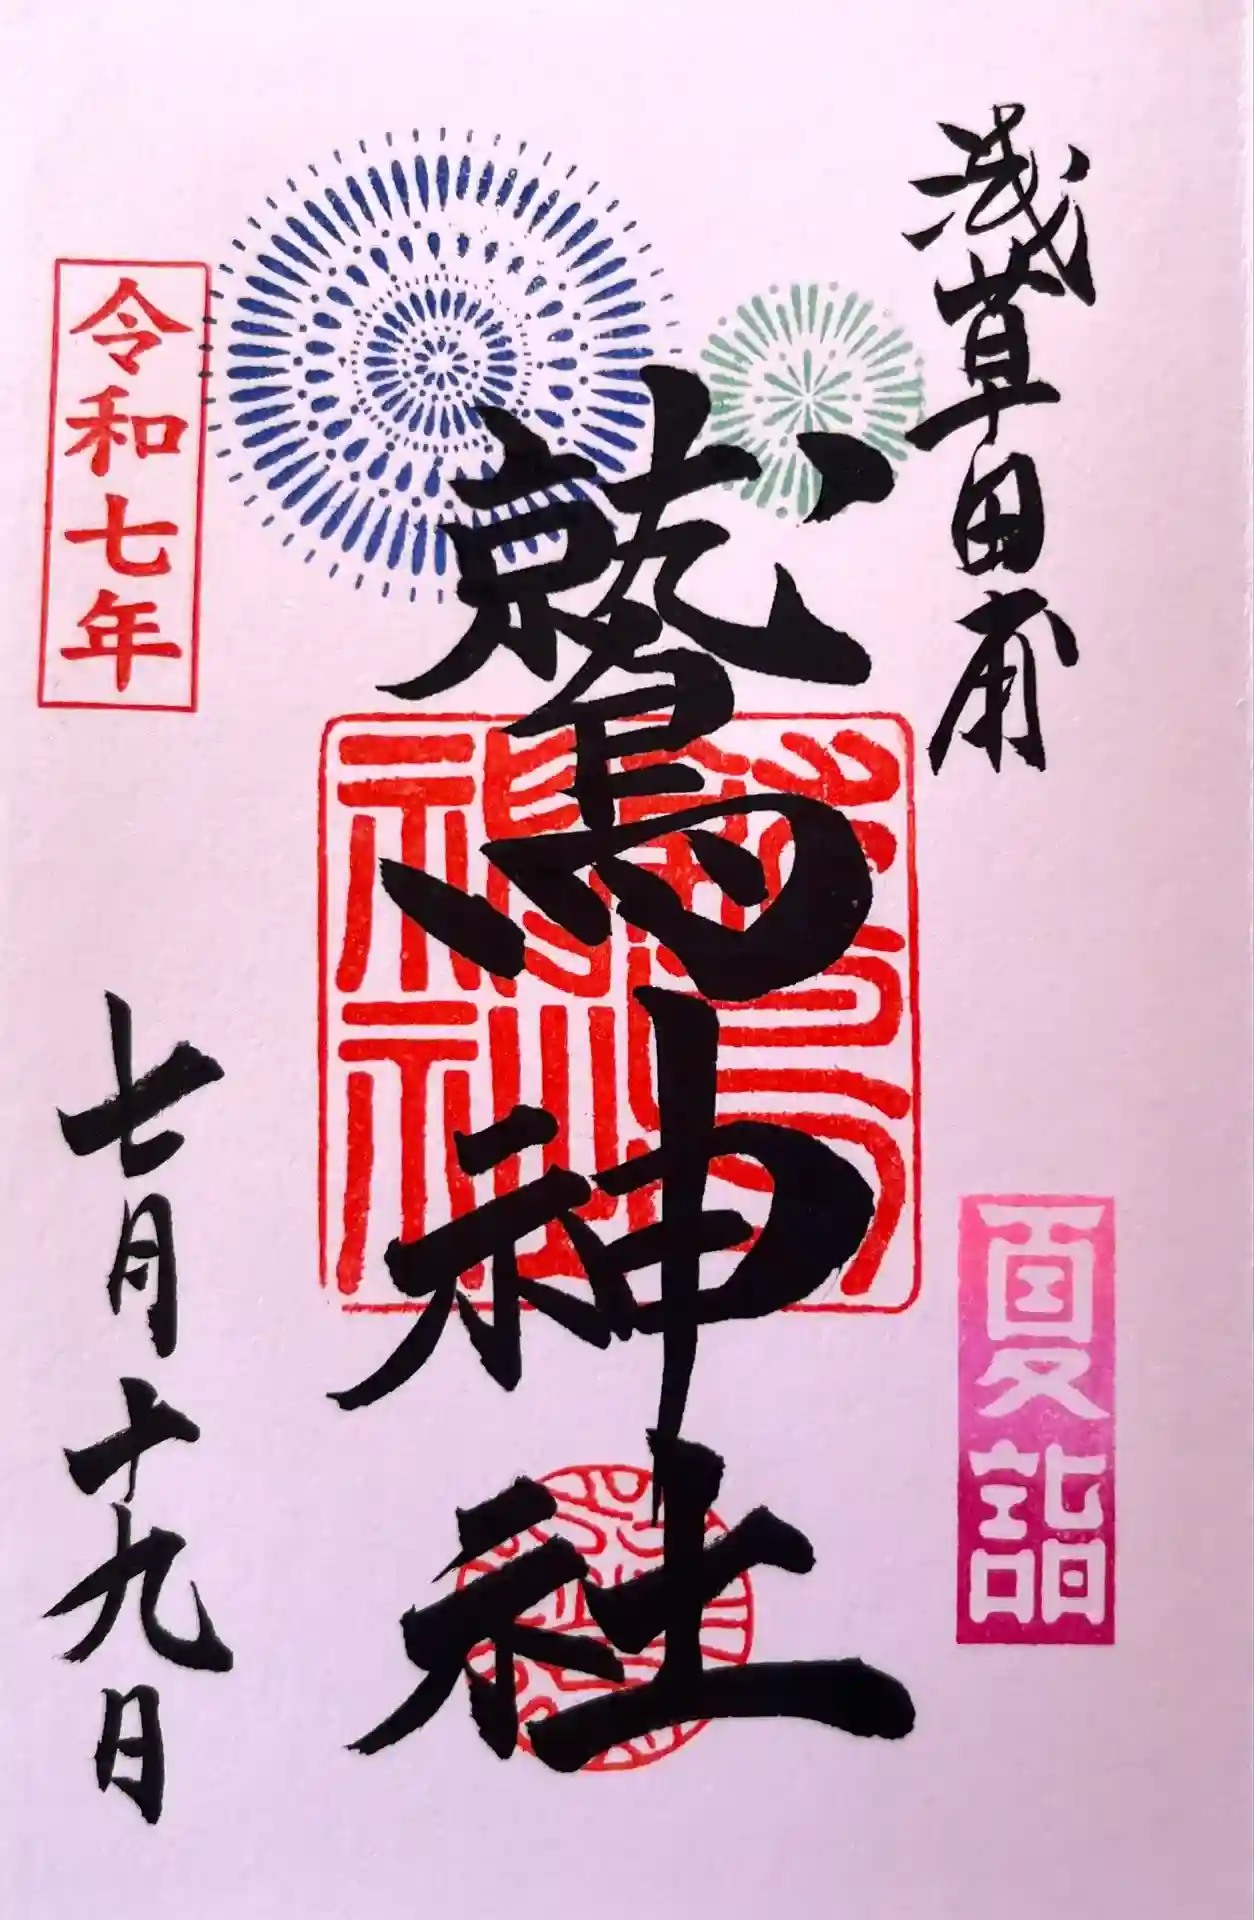 浅草田甫
夏詣
鷲神社
鷲神社
令和七年
七月十九日